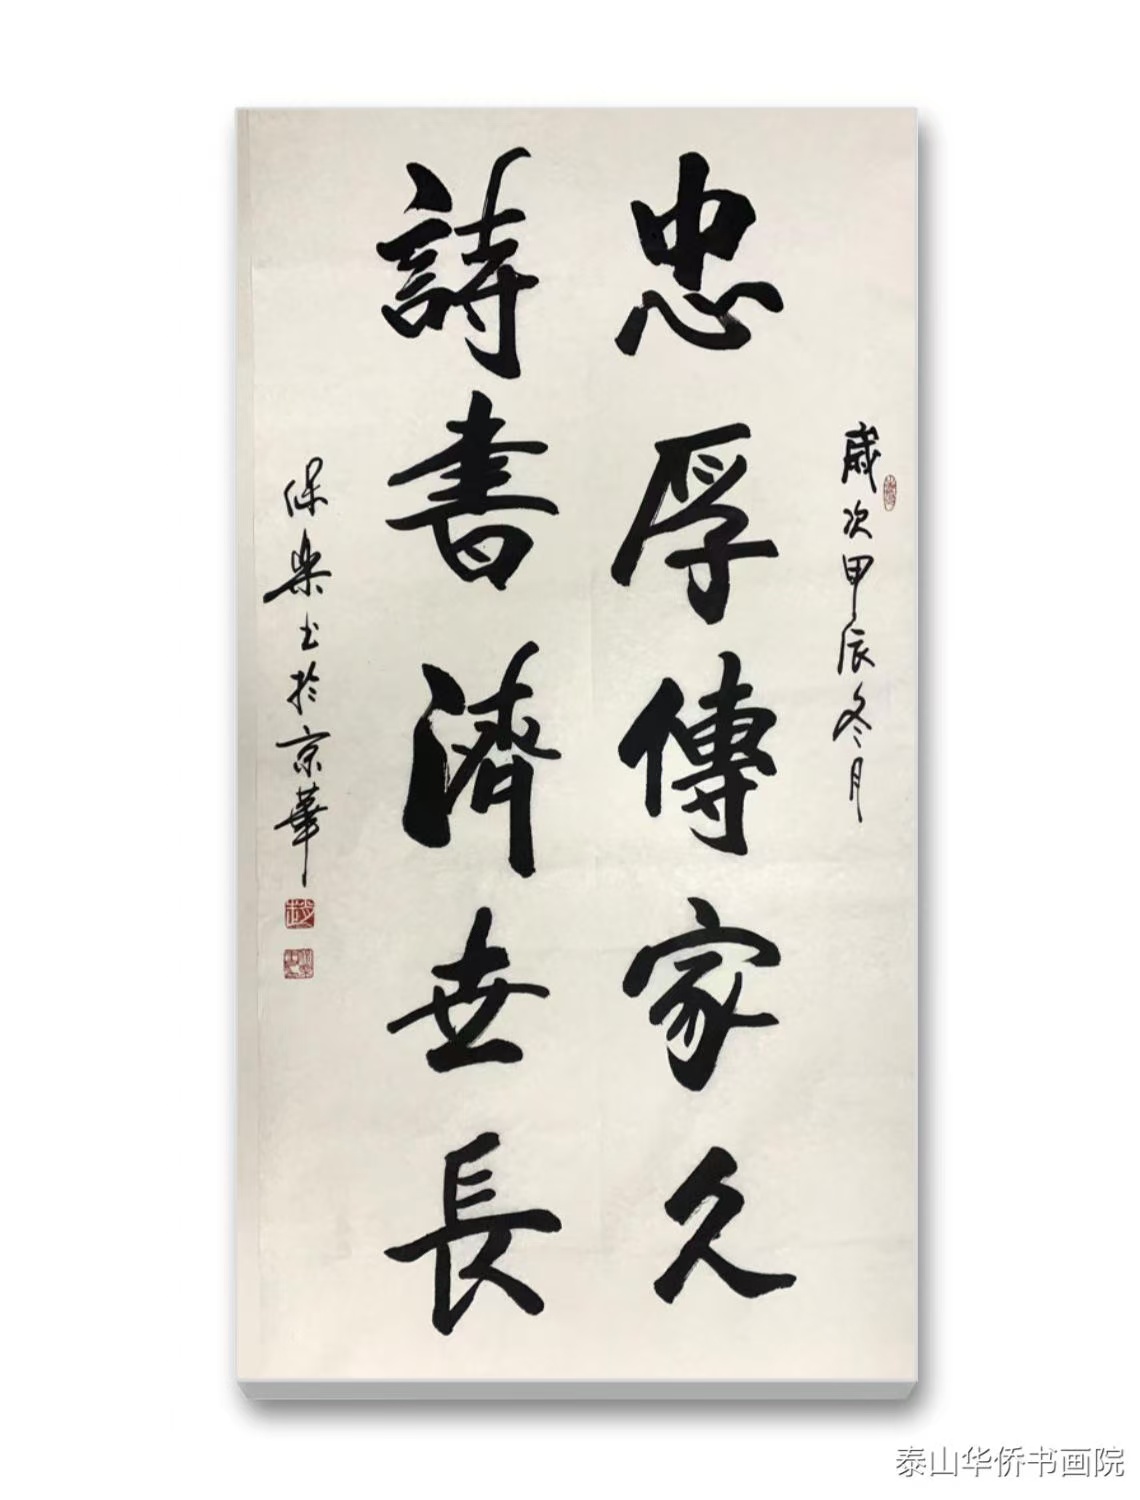 歲次甲辰冬月
忠厚傳家久
詩書濟世長
保樂书於京華
泰山华侨书画院